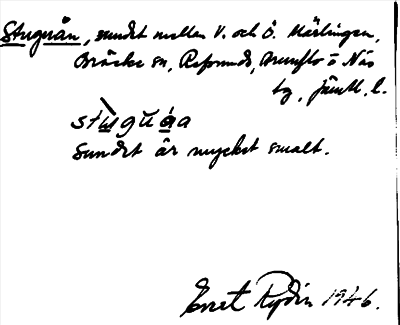 Stuguån, sundet mellan V. och Ö. Mårlingen,
Bräcke sn, Refsunds, Brunflo o Näs
tg, Jämtl. l.
Sundet är mycket smalt.
Ernst Rydin 1946.